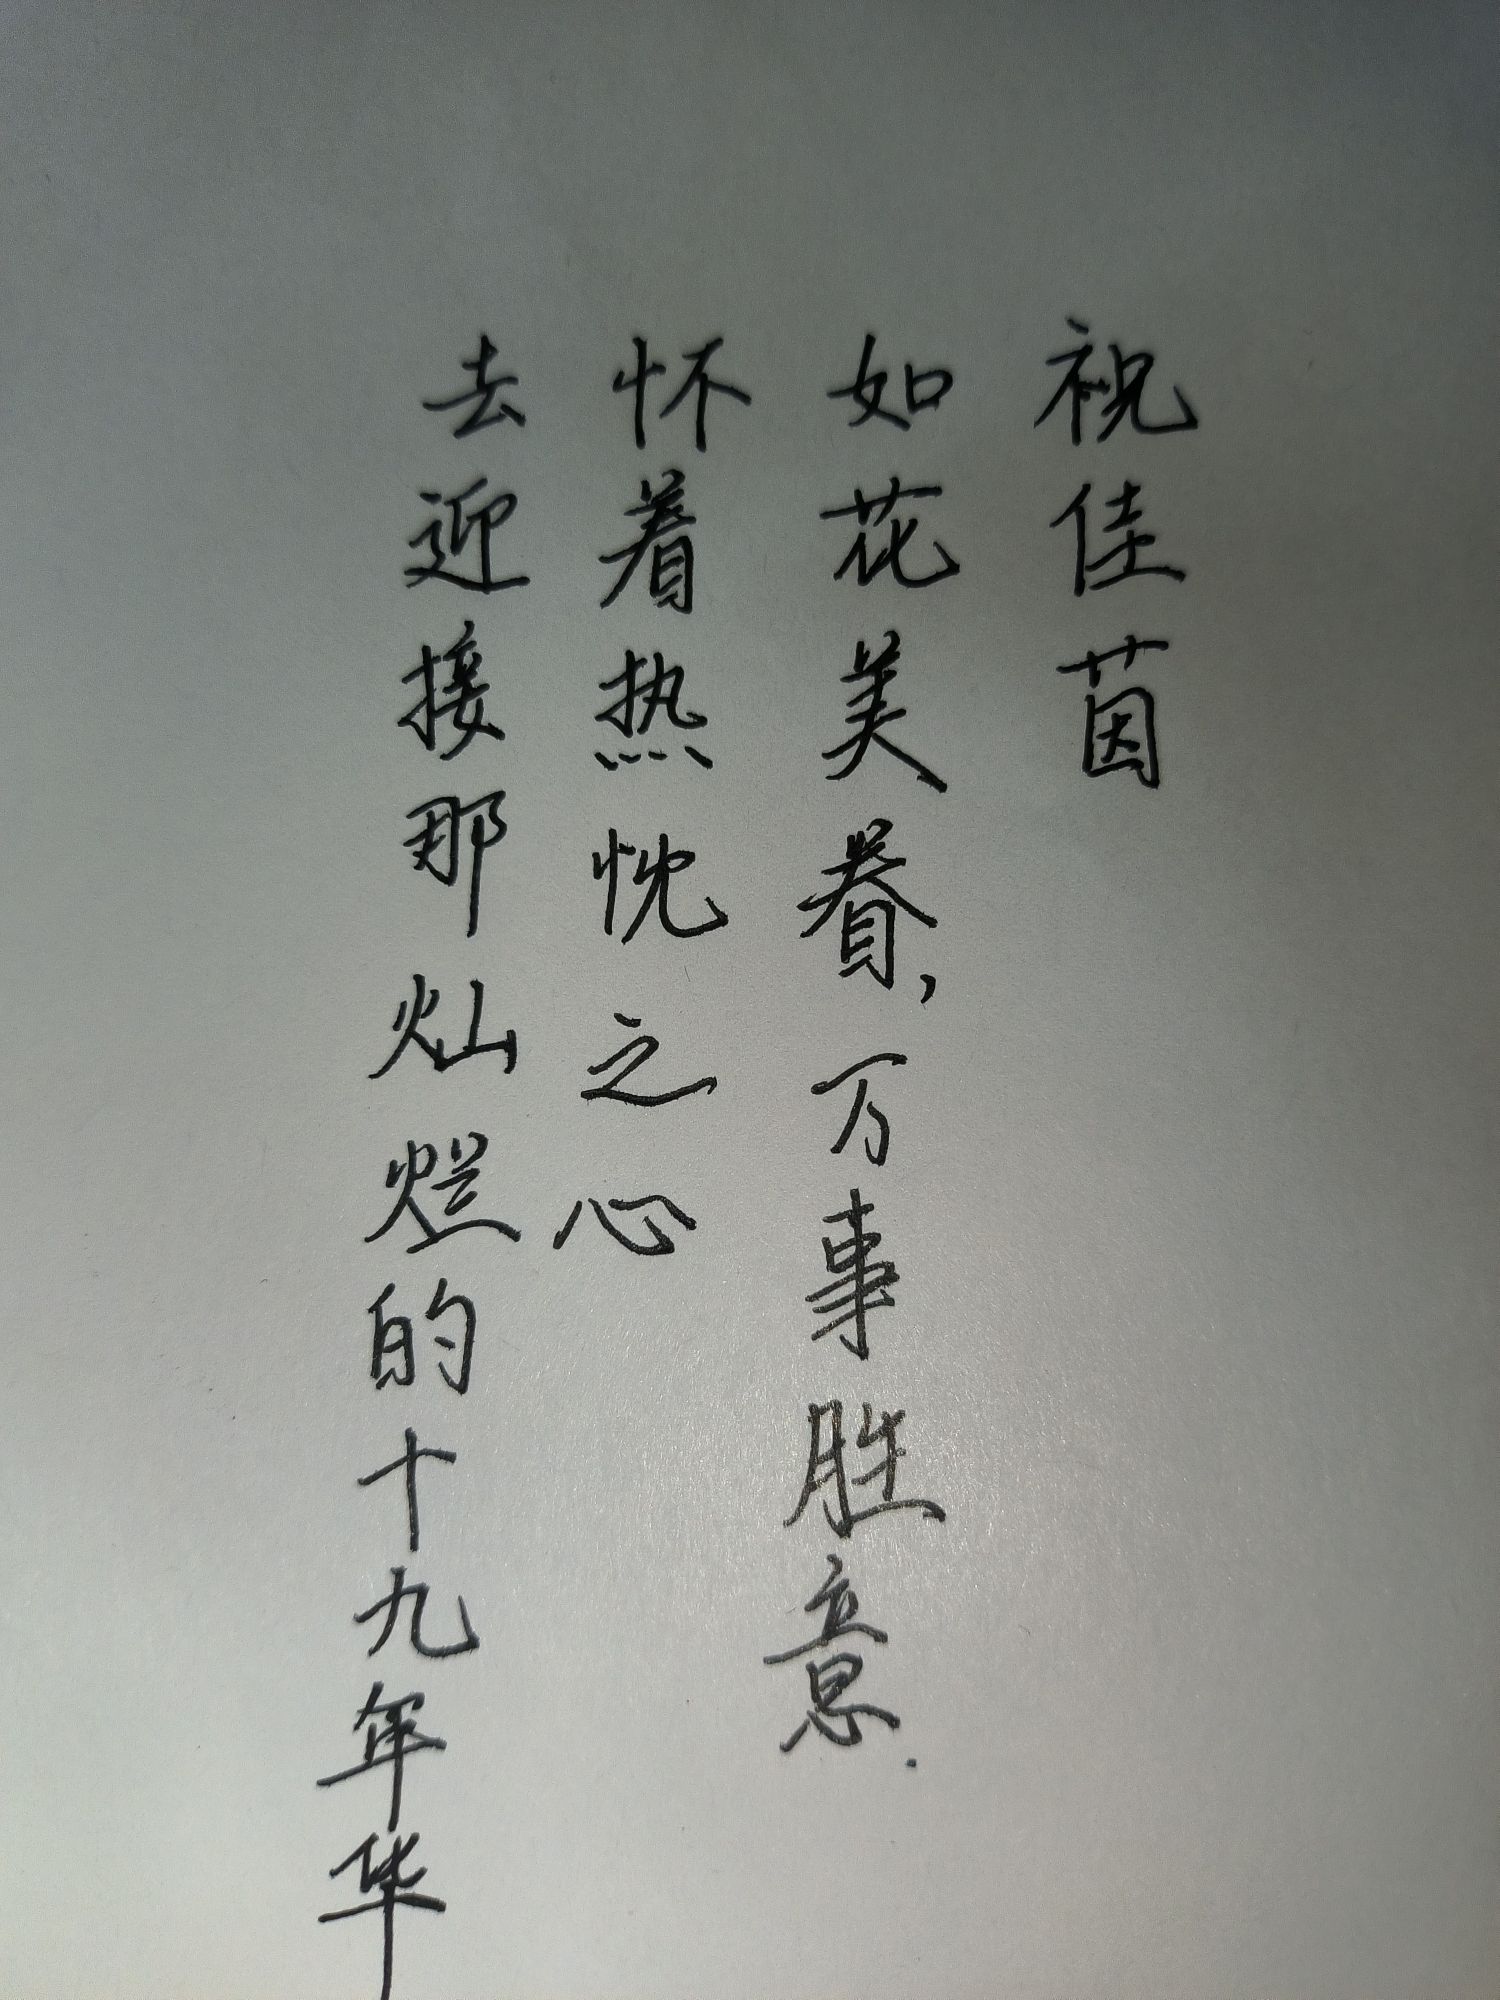 祝佳茵
如花美眷,万事胜意.
怀着热忱之心
去迎接那灿烂的十九年华